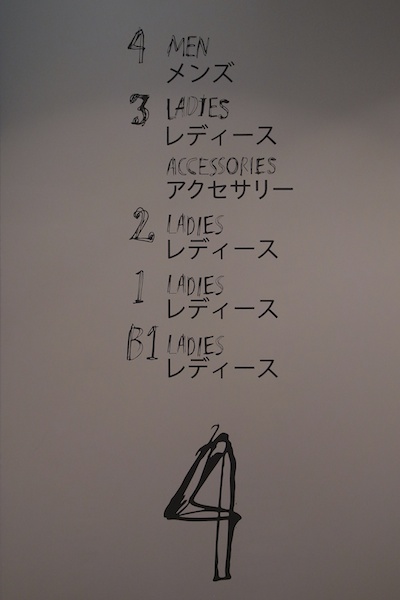 4 MEN
メンズ
3 LADIES
レディース
ACCESSORIES
アクセサリー
2 LADIES
レディース
1 LADIES
レディース
B1 LADIES
レディース
4